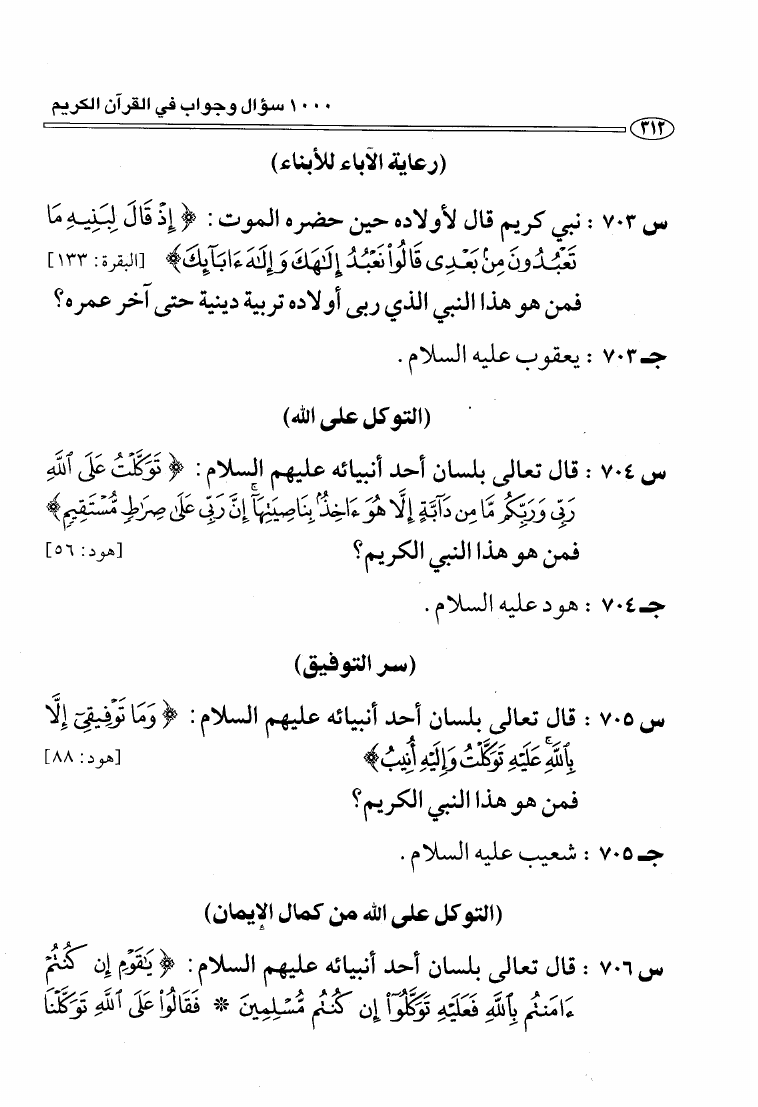 ١٠٠٠ سؤال وجواب في القرآن الكريم
٣١٢
(رعاية الآباء للأبناء)
س ٧٠٣ : نبي كريم قال لأولاده حين حضره الموت : ﴿ إِذْ قَالَ لِبَنِيهِ مَا
تَعْبُدُونَ مِنْ بَعْدِى قَالُوا۟ نَعْبُدُ إِلَٰهَكَ وَإِلَٰهَ ءَابَآئِكَ ﴾ [البقرة: ١٣٣]
فمن هو هذا النبي الذي ربى أولاده تربية دينية حتى آخر عمره؟
جـ ٧٠٣ : يعقوب عليه السلام .
(التوكل على الله)
س ٧٠٤ : قال تعالى بلسان أحد أنبيائه عليهم السلام : ﴿ تَوَكَّلْتُ عَلَى ٱللَّهِ
رَبِّى وَرَبِّكُم مَّا مِن دَآبَّةٍ إِلَّا هُوَ ءَاخِذٌۢ بِنَاصِيَتِهَآ ۚ إِنَّ رَبِّى عَلَىٰ صِرَٰطٍ مُّسْتَقِيمٍ ﴾
فمن هو هذا النبي الكريم؟ [هود: ٥٦]
جـ ٧٠٤ : هود عليه السلام .
(سر التوفيق)
س ٧٠٥ : قال تعالى بلسان أحد أنبيائه عليهم السلام : ﴿ وَمَا تَوْفِيقِىٓ إِلَّا
بِٱللَّهِ ۚ عَلَيْهِ تَوَكَّلْتُ وَإِلَيْهِ أُنِيبُ ﴾ [هود: ٨٨]
فمن هو هذا النبي الكريم؟
جـ ٧٠٥ : شعيب عليه السلام .
(التوكل على الله من كمال الإيمان)
س ٧٠٦ : قال تعالى بلسان أحد أنبيائه عليهم السلام : ﴿ يَٰقَوْمِ إِن كُنتُمْ
ءَامَنتُم بِٱللَّهِ فَعَلَيْهِ تَوَكَّلُوٓا۟ إِن كُنتُم مُّسْلِمِينَ * فَقَالُوا۟ عَلَى ٱللَّهِ تَوَكَّلْنَا